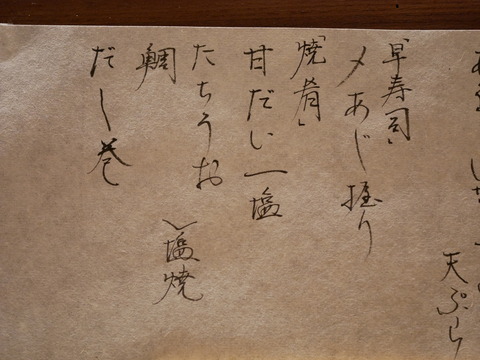 天ぷら
「早寿司」
〆あじ握り
「焼肴」
甘だい一塩
たちうお
鯛
＞塩焼
だし巻